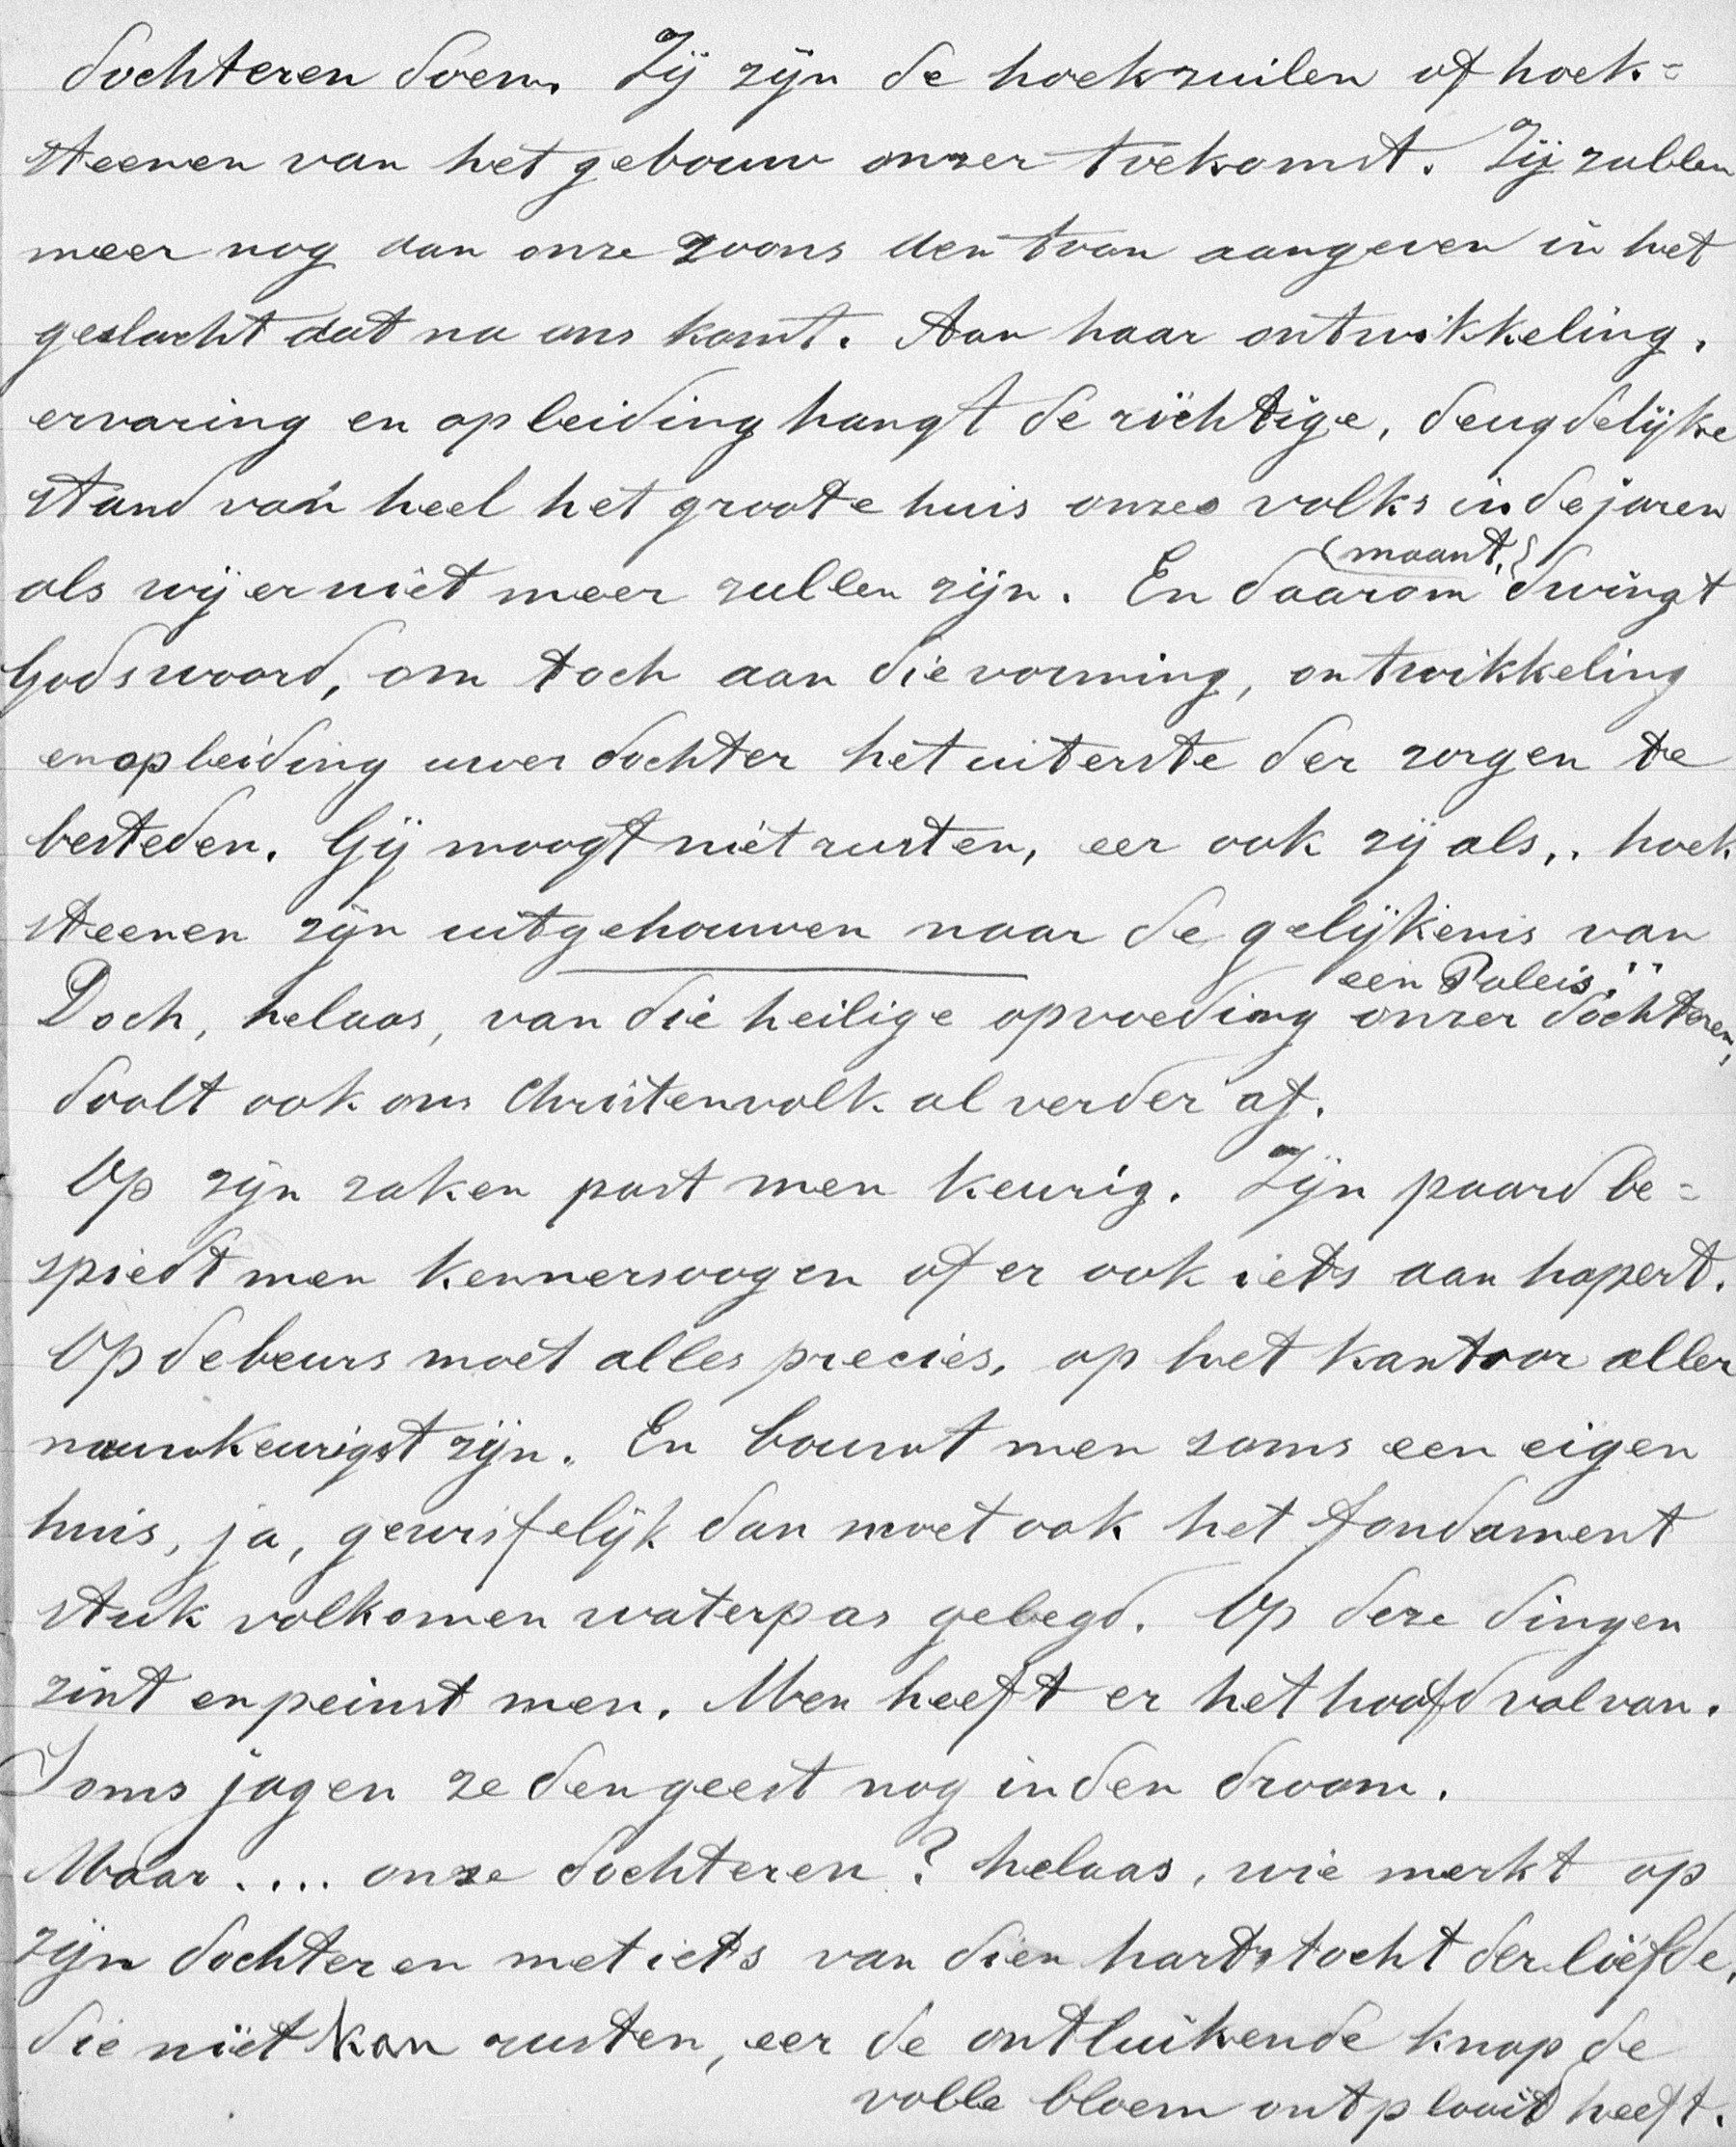 dochteren doen. Zij zijn de hoekzuilen of hoek=
steenen van het gebouw onzer toekomst. Zij zullen
meer nog dan onze zoons den toon aangeven in het
geslacht dat na ons komt. Aan haar ontwikkeling,
ervaring en opleiding hangt de richtige, deugdelijke
stand van heel het groote huis onzes volks in de jaren
als wij er niet meer zullen zijn. En daarom (maant,) dwingt
Gods woord, om toch aan die vorming, ontwikkeling
en opleiding uwer dochter het uiterste der zorgen te
besteden. Gij moogt niet rusten, eer ook zij als,, hoek
steenen zijn uitgehouwen naar de gelijkenis van
een Paleis."
Doch, helaas, van die heilige opvoeding onzer dochteren,
doolt ook ons Christenvolk al verder af.
Op zijn zaken past men keurig. Zijn paard be=
spiedt men kennersoogen of er ook iets aan hapert.
Op de beurs moet alles precies, op het kantoor aller
nauwkeurigst zijn. En bouwt men soms een eigen
huis, ja, gewisfelijk dan moet ook het fondament
stuk volkomen waterpas gelegd. Op deze dingen
zint en peinst men. Men heeft er het hoofd vol van.
Soms jagen ze den geest nog in den droom.
Maar .... onze dochteren? helaas, wie merkt op
zijn dochteren met iets van dien hartstocht der liefde,
die niet kan rusten, eer de ontluikende knop de
volle bloem ontplooid heeft.